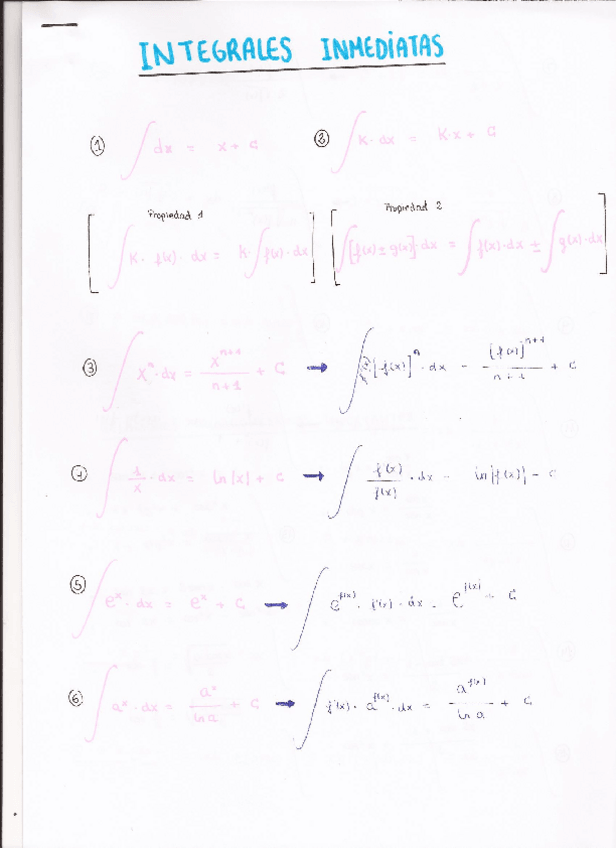 INTEGRALES INMEDIATAS
① ∫ dx = x + C ② ∫ K · dx = K · x + C
Propiedad 1 Propiedad 2
[ ∫ K · f(x) · dx = K · ∫ f(x) · dx ] [ ∫ [f(x) ± g(x)] · dx = ∫ f(x) · dx ± ∫ g(x) · dx ]
③ ∫ xⁿ · dx = xⁿ⁺¹ / n+1 + C → ∫ [f(x)]ⁿ · dx = [f(x)]ⁿ⁺¹ / n+1 + C
④ ∫ 1/x · dx = ln|x| + C → ∫ f'(x)/f(x) · dx = ln|f(x)| + C
⑤ ∫ eˣ · dx = eˣ + C → ∫ e^f(x) · f'(x) · dx = e^f(x) + C
⑥ ∫ aˣ · dx = aˣ / ln a + C → ∫ f'(x) · a^f(x) · dx = a^f(x) / ln a + C